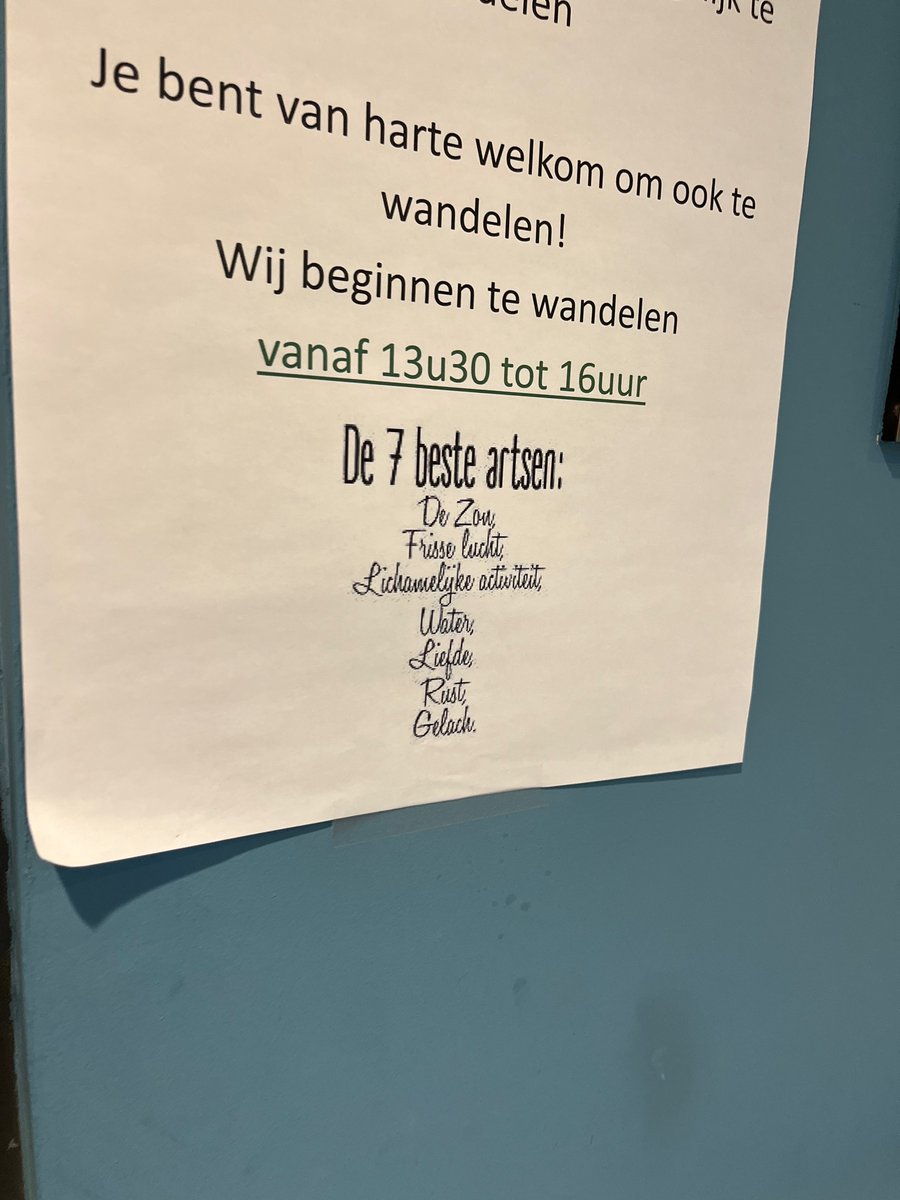 te
Je bent van harte welkom om ook te
wandelen!
Wij beginnen te wandelen
vanaf 13u30 tot 16uur
De 7 beste artsen:
De Zon,
Frisse lucht,
Lichamelijke activiteit,
Water,
Liefde,
Rust,
Gelach.